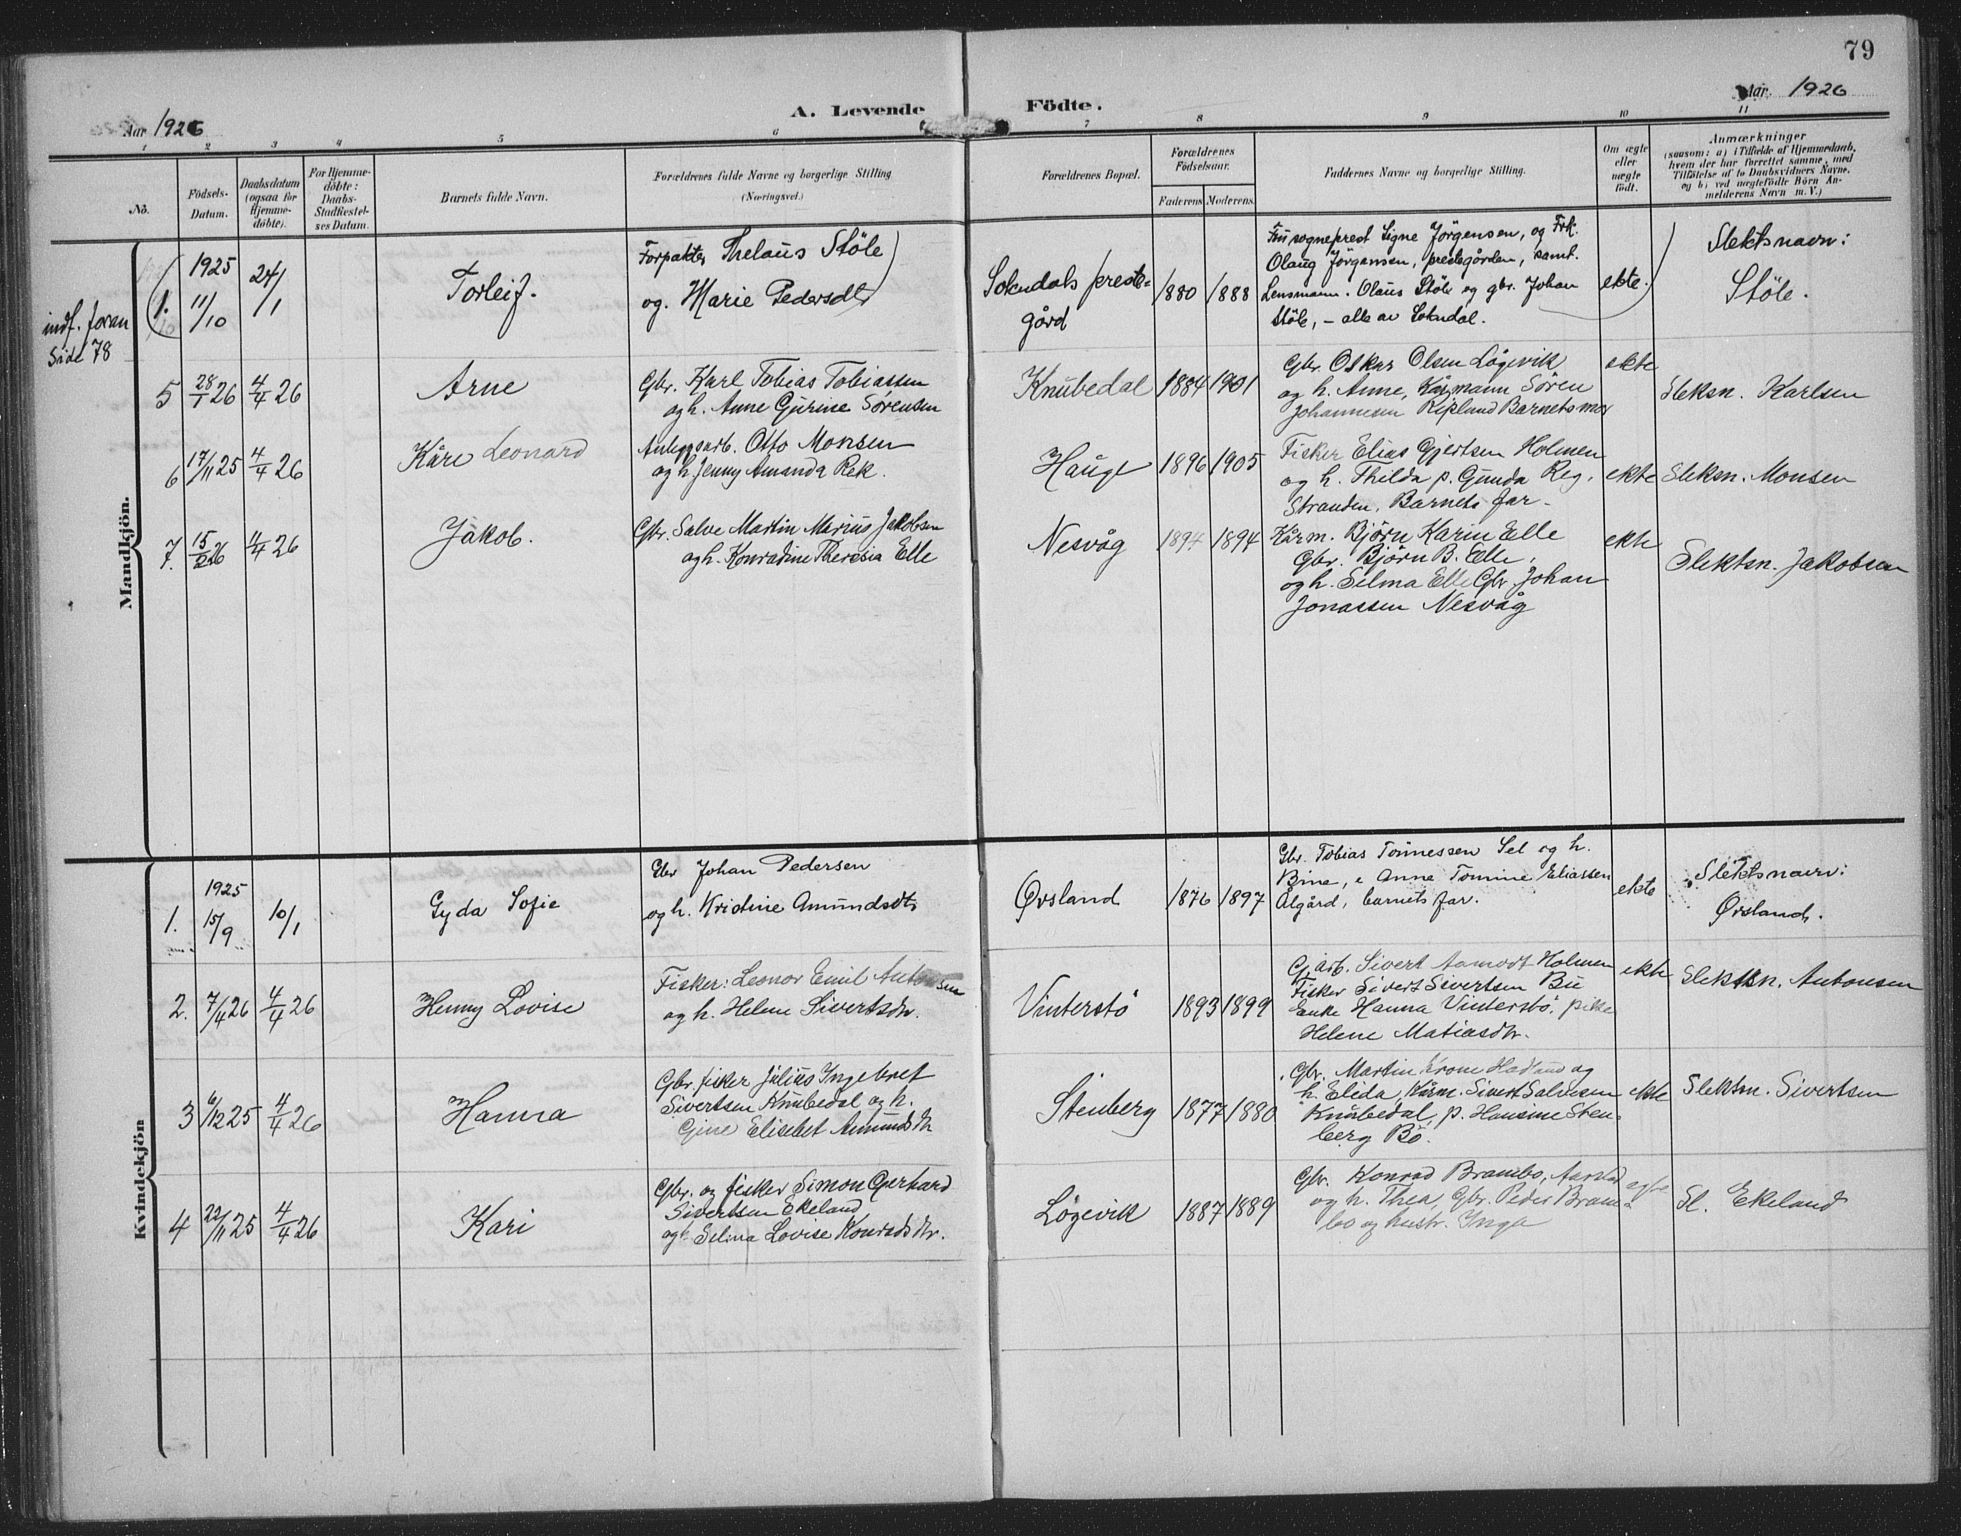 79
Aar 1926
A. Levende Födte.
Aar 1926
1 2 3 4 5 6 7 8 9 10 11
No.
Födsels-
Datum.
Daabsdatum
(ogsaa for
Hjemme-
döbte).
For Hjemme-
döbte:
Daabs-
Stadfæstel-
ses Datum.
Barnets fulde Navn.
Forældrenes fulde Navne og borgerlige Stilling
(Næringsvei.)
Forældrenes Bopæl.
Forældrenes
Födselsaar.
Faderens Moderens
Faddernes Navne og borgerlige Stilling.
Om ægte
eller
uægte
födt.
Anmærkninger
(saasom: a) i Tilfælde af Hjemmedaab,
hvem der har forrettet samme, med
Tilföielse af to Daabsvidners Navne.
og b) ved uægtefödte Börn An-
melderens Navn m. V.)
Mandkjön.
indf. foran
Side 78
1.
1925
11/10
24/1
Torleif.
Forpakter Thelaus Stöle
og Marie Pedersdtr
Sokndals preste-
gård
1880 1888
Fru sogneprest Signe Jörgensen, og Frk.
Olaug Jörgensen, prestegården, samt
Lensmann Olaus Stöle og gbr. Johan
Stöle, - alle av Sokndal.
ekte.
Slektsnavn:
Stöle.
5 28/1 26 4/4 26
Arne
Gbr. Karl Tobias Tobiassen
og h. Anne Gurine Sørensen
Knubedal 1884 1901
Gbr. Oskar Olsen Løgevik
og h. Anne, Kårmann Sören
Johannesen Barnets mor
ekte
Sleksn. Karlsen
6 17/11 25 4/4 26
Kåre Leonard
Anleggsarb. Otto Monsen
og h. Jenny Amanda Rek.
Hauge 1896 1905
Fisker Elias Gjertsen Holmen
og h. Thilda p. Gunda Reg.
Stranden, Barnets far.
ekte
Sleksn. Monsen
7. 15/2 26 4/4 26
Jakob.
Gbr. Salve Martin Marius Jakobsen
og h. Konradine Theresia Elle
Nesvåg 1894 1894
Kårm. Björn Karin Elle
Gbr. Björn B. Elle,
og h. Selma Elle Gbr. Johan
Jonassen Nesvåg
ekte
Slektsn. Jakobsen
Kvindekjön
1.
1925
15/9
10/1
Gyda Sofie
Gbr Johan Pedersen
og h. Kristine Amundsdtr
Øvsland 1876 1897
Gbr. Tobias Tönnessen Sel og h.
Bine, Anne Tomine Eliassen
Algård, barnets far.
ekte
Slektsnavn:
Øvsland.
2. 7/4 26 4/4 26
Henny Lovise
Fisker: Leonor Emil Antonsen
og h. Helene Sivertsdtr.
Vinterstö 1893 1899
Gj.arb. Sivert Aamodt Holmen
Fisker Sivert Sivertsen Bu
Enke Hanna Vinterstö, pike
Helene Matiasdtr.
ekte
Slektsn. Antonsen
3 6/12 25 4/4 26
Hanna
Gbr. fisker Julius Ingebret
Sivertsen Knubedal og h.
Gjine Elisebet Amundsdtr
Stenberg 1877 1880
Gbr. Martin Krone Hadland og
h. Elida, Kårm. Sivert Salvesen
Knubedal, p. Hansine Sten-
berg Bö.
ekte
Slektsn. Sivertsen
4 22/11 25 4/4 26
Kari
Gbr. og fisker Simon Gerhard
Sivertsen Ekeland
og h. Selma Lovise Konradsdtr.
Løgevik 1887 1889
Gbr. Konrad Brambo, Aarstad
og h. Thea, Gbr. Peder Bram-
bo og hustr. Inga
Sl. Ekeland